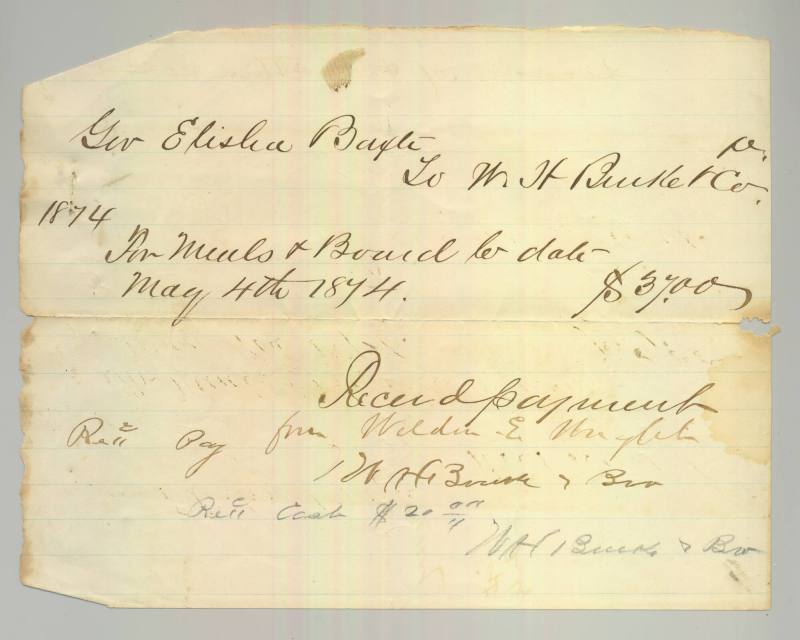 Gov Elisha Baxte
To W. H Burke & Co. Dr.
1874
For Meals & Board to date
May 4th 1874. $37.00
Receivd payment
Recd Pay from Weldin E Wright
W H Burk & Bro
Recd Cash $20 00
W H Burk & Bro